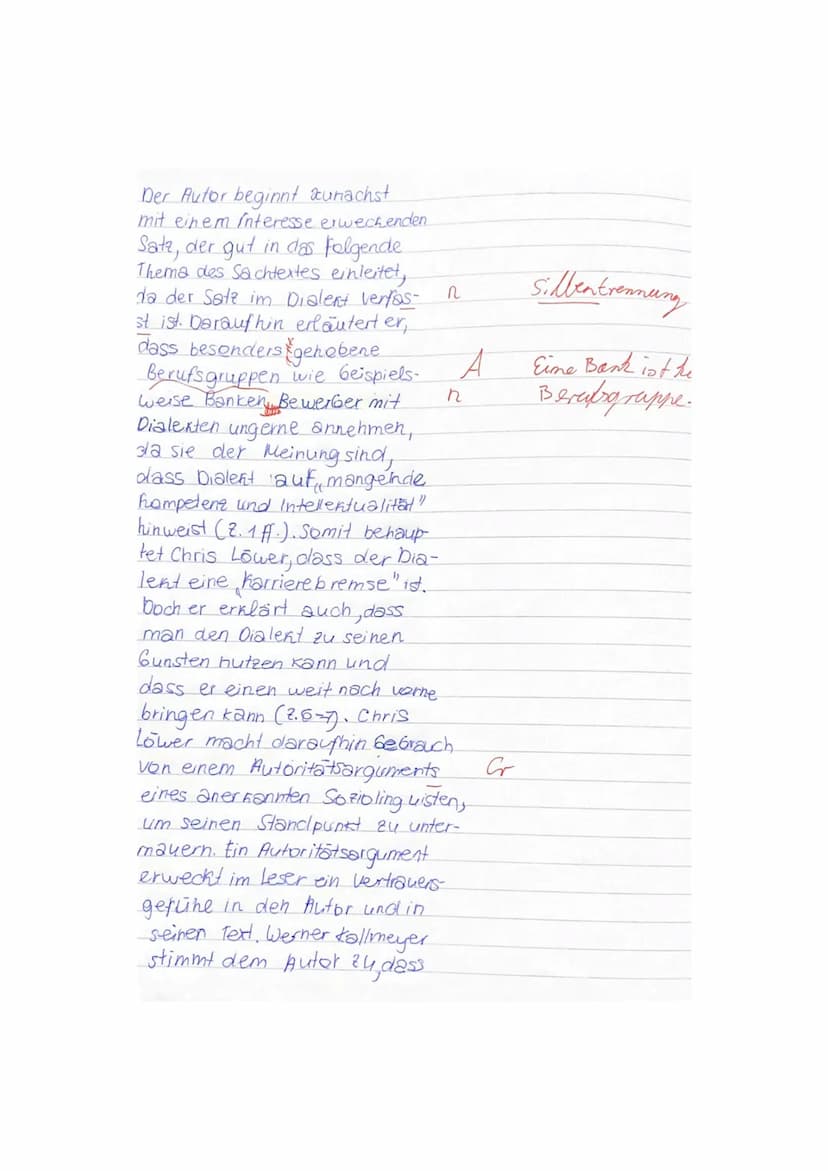 Der Autor beginnt zunächst
mit einem Interesse erweckenden
Satz, der gut in das folgende
Thema des Sachtextes einleitet,
da der Satz im Dialekt verfas- n Silbentrennung
st ist. Daraufhin erläutert er,
dass besonders gehobene
Berufsgruppen wie beispiels- A Eine Bank ist
weise Banken, Bewerber mit n Berufsgruppe.
Dialekten ungerne annehmen,
da sie der Meinung sind,
dass Dialekt auf „mangelnde
Kompetenz und Intellektualität"
hinweist (Z. 1 ff.). Somit behaup-
tet Chris Löwer, dass der Dia-
lekt eine „Karrierebremse" ist.
Doch er erklärt auch, dass
man den Dialekt zu seinen
Gunsten nutzen kann und
dass er einen weit nach vorne
bringen kann (Z. 6-7). Chris
Löwer macht daraufhin Gebrauch
von einem Autoritätsarguments Gr
eines anerkannten Soziolinguisten,
um seinen Standpunkt zu unter-
mauern. Ein Autoritätsargument
erweckt im Leser ein Vertrauens-
gefühe in den Autor und in
seinen Text. Werner Kallmeyer
stimmt dem Autor zu, dass